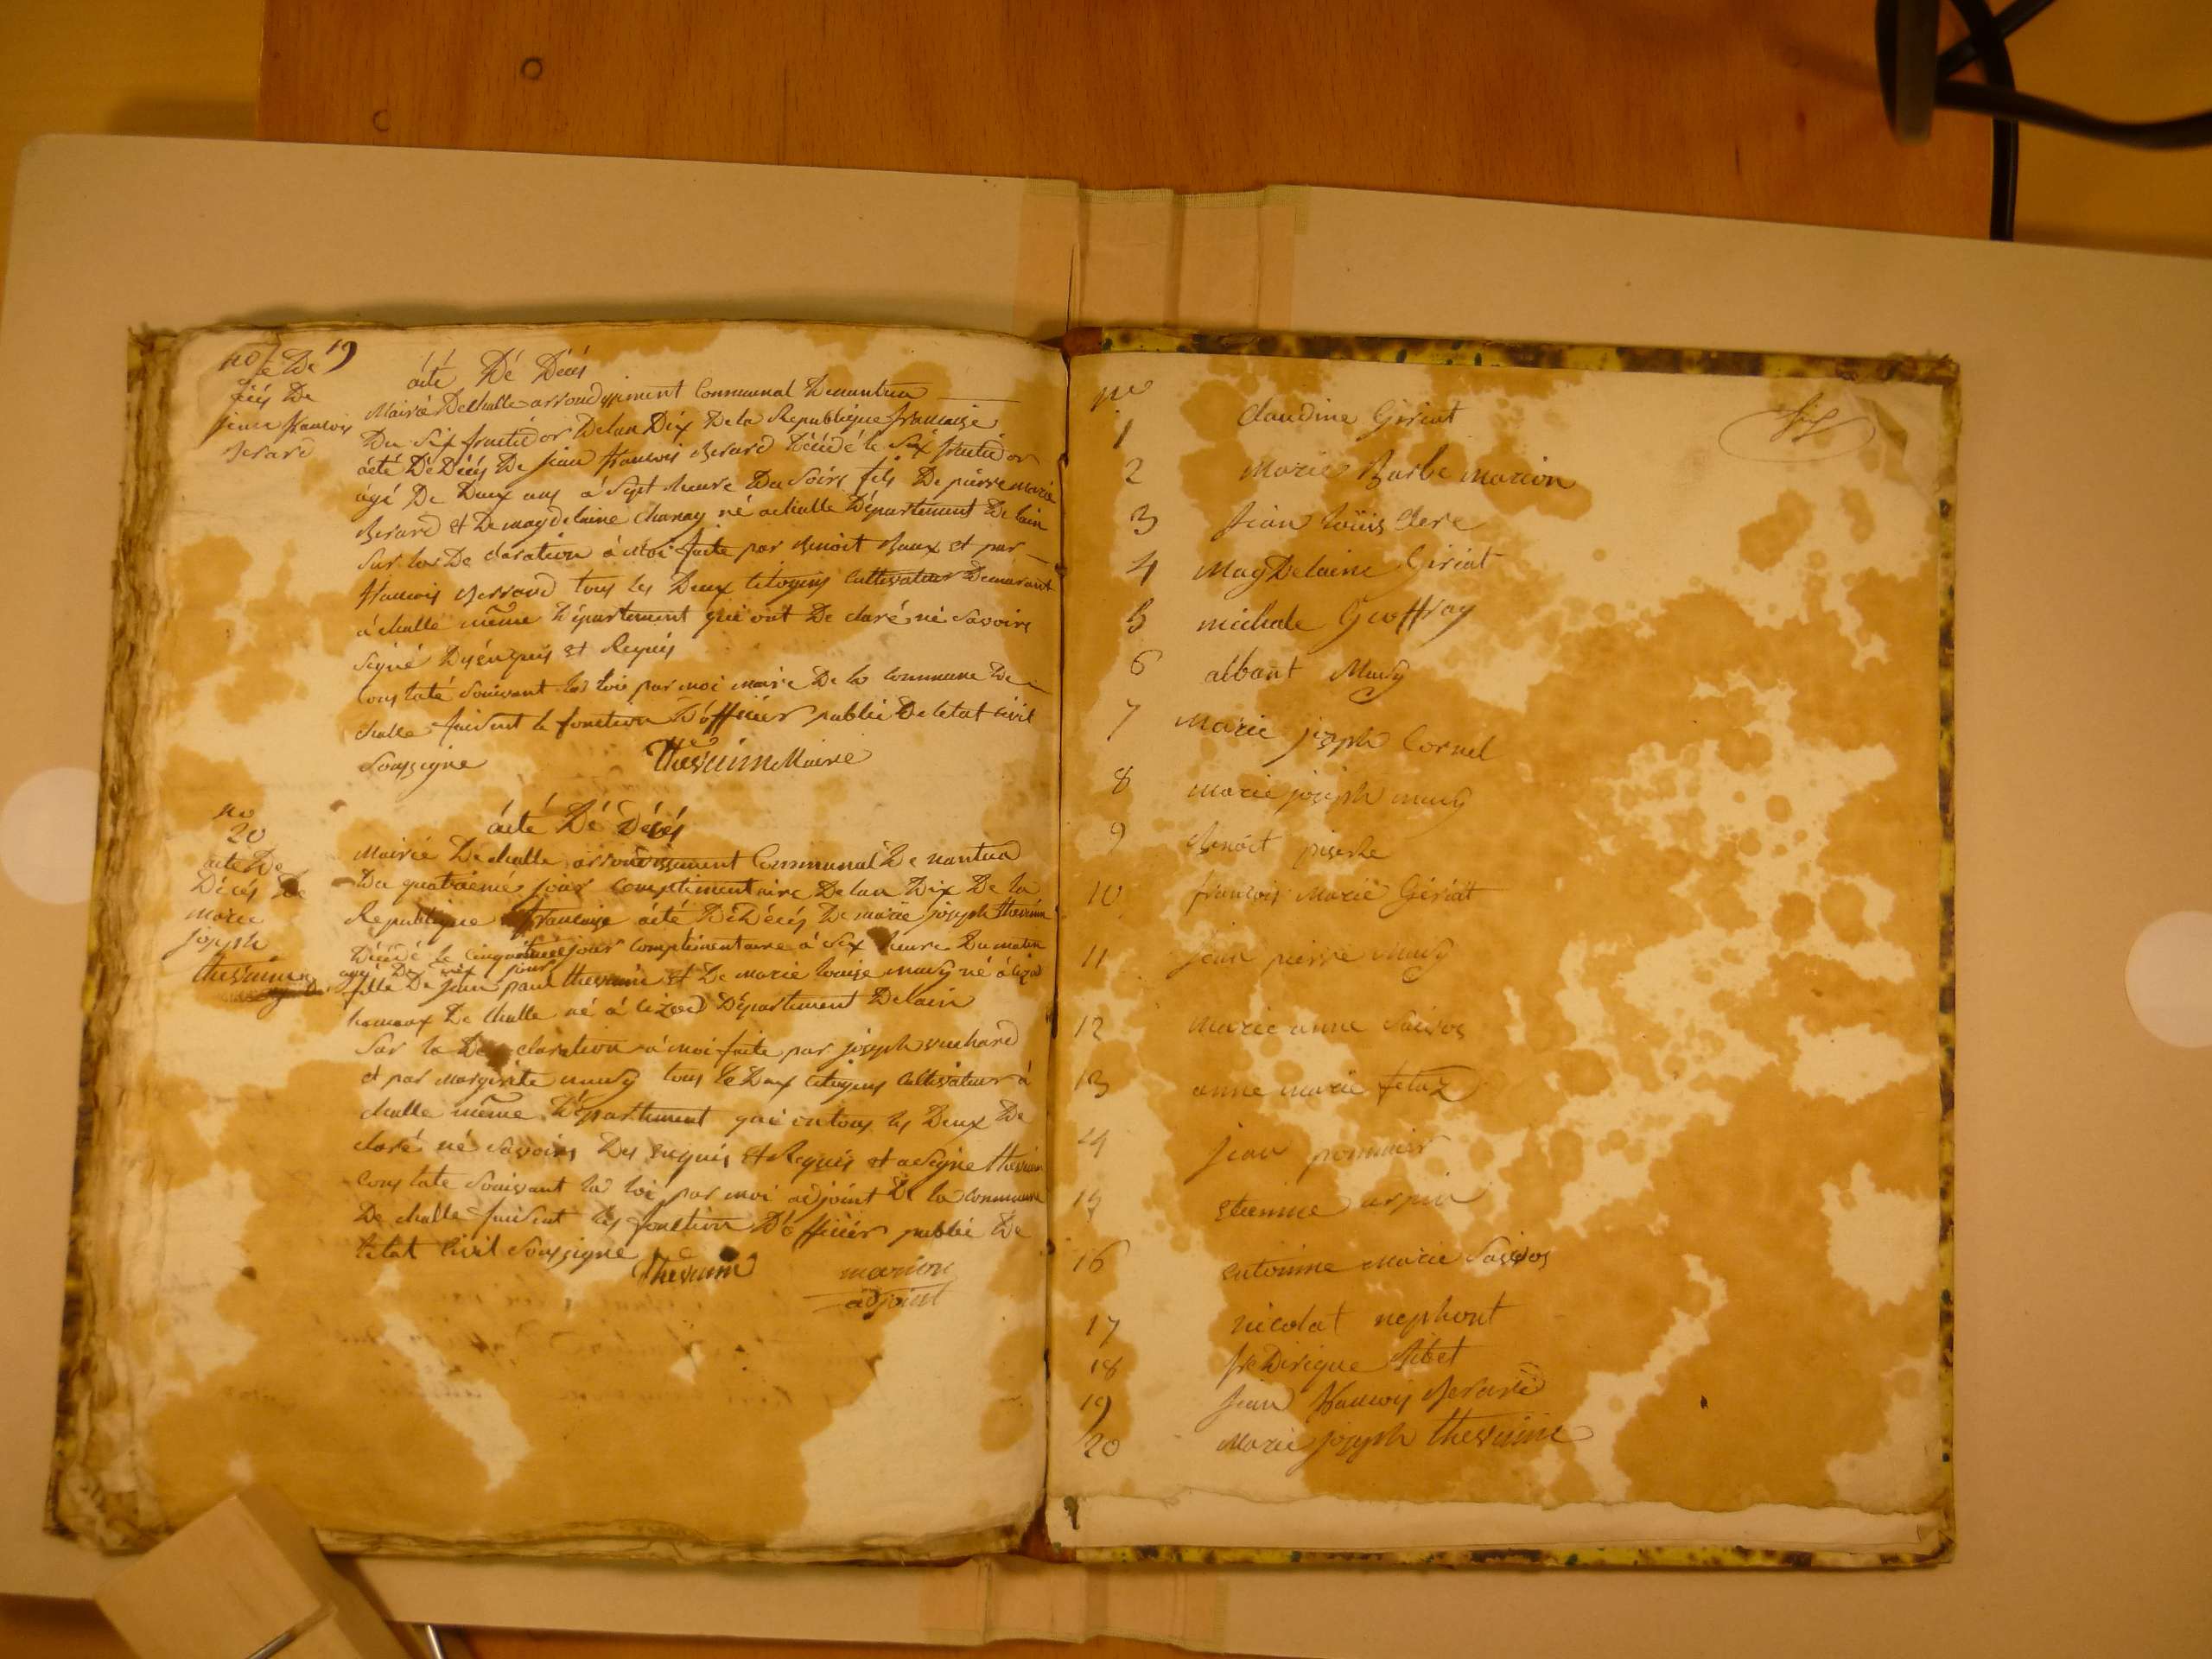 no 19
acte De
Jean francois
Berard
acte Dé Décés
Mairie De challe arrondissiment Communal De nantua
Du Six fructidor De lan Dix De la Republique francaise
acté De Décés De jean francois Berard décédé le Six fructidor
agé De Deux ans á Sept heure Du Soirs fils De pierre marie
Berard et De magdelaine charnay né a challe Département De lain
Sur la De claration á moi faite par Benoit Baux et par
francois Berrard tous les Deux citoyens cultivateur Demeurant
á challe même Département qui ont De claré né Savoirs
Signé De enquis et Requis
Constaté Suivant la loi par moi maire De la commune De
challe faisant le fonction D'officier public De letat civil
Soussigne Thevenin Maire
no
20
acte De
Décés De
marie
joseph
thevenin
acté Dé Décés
Mairie De challe arrondissiment Communal De nantua
Du quatriemé jour complimentaire De lan Dix De la
Republique francaise acté De Décés De marie joseph thevenin
Décédé le cinquiéme jour complimentaire á Six heure Du matin
agé De six jour
fille De jean paul thevenin et De marie louise mudy né á
hameaux De challe né á Département De lain
Sur la De claration á moi faite par joseph
et par margerite mudy tous le Deux citoyens cultivateur á
challe même Département qui on tous les Deux De
claré né Savoirs De enquis et Requis et a Signe thevenin
Constate Suivant la loi par moi adjoint De la commune
De challe faisant les fonction D'officier public De
letat civil Soussigne
thevenin marion
adjoint
no
1 claudine Giriat
2 Marie Barbe marion
3 Jean loüis Clerc
4 MagDelaine Giriat
5 michale Geoffray
6 albant Mudy
7 Marie joseph Cornel
8 marie joseph mudy
9 Benoit
10 francois Marie Giriat
11 jean pierre mudy
12 marie anne
13 anne marie fetaz
14 jean pommier
15 etiennne arpin
16 antoinne Marie
17 nicolat nephout
18 freDerique Ribet
19 jean francois Berard
20 Marie joseph thevenin